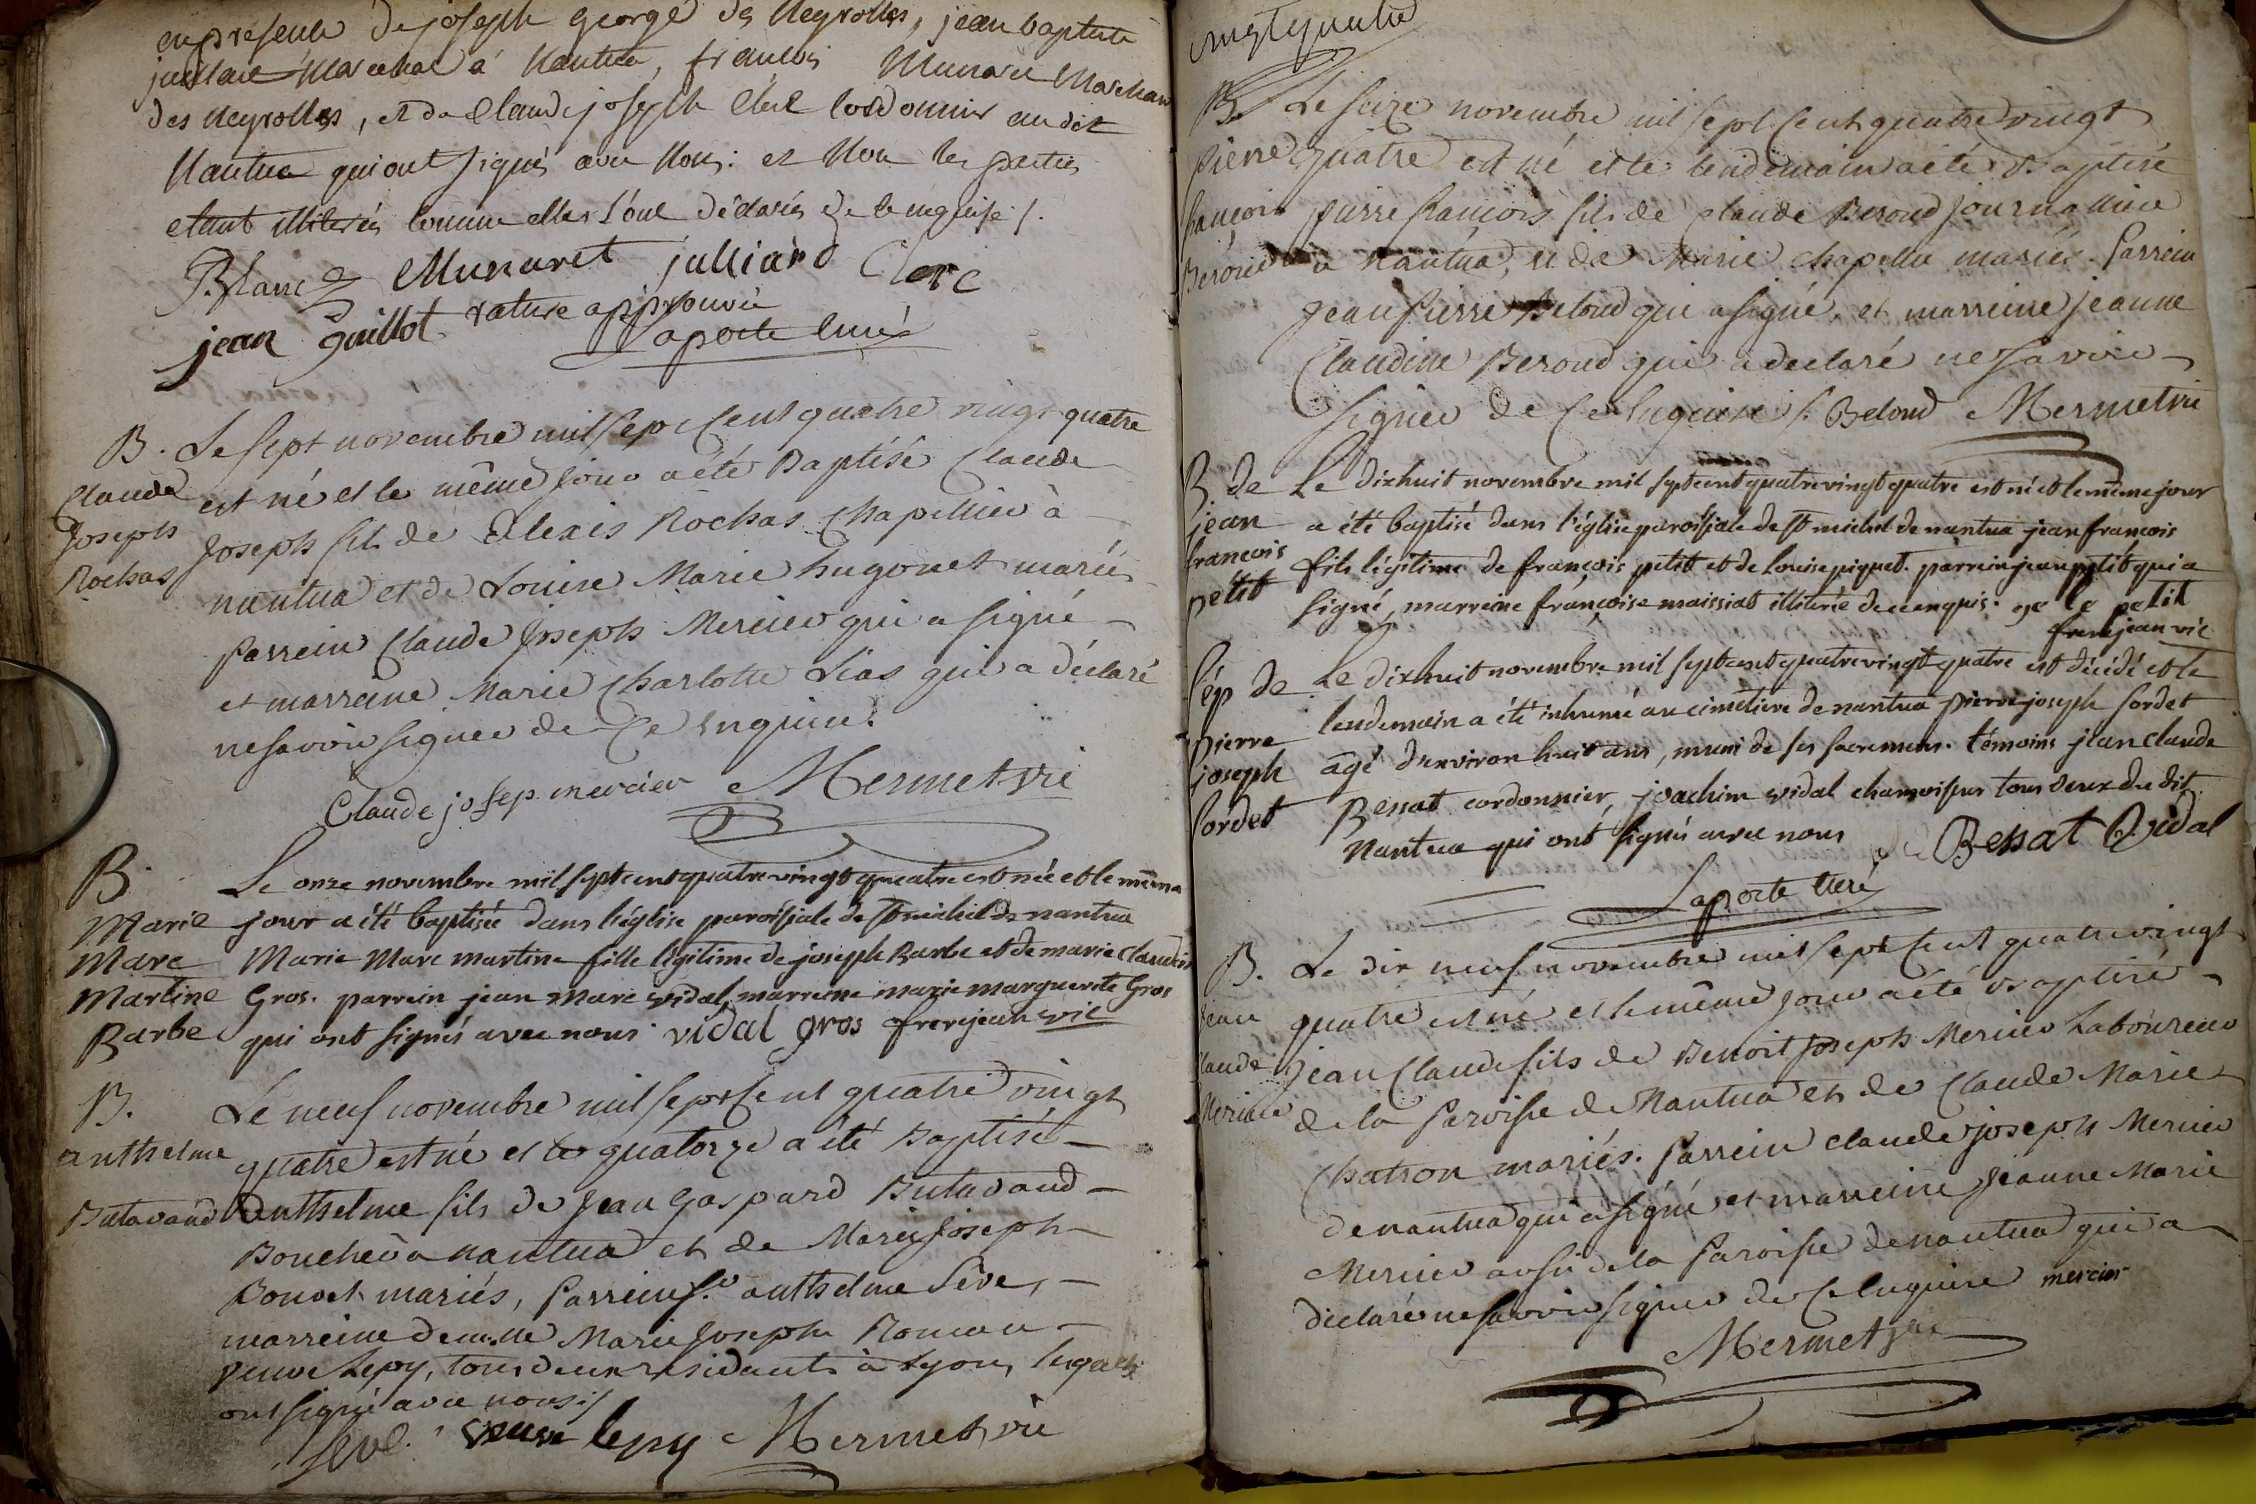 en présence de joseph george des Neyrolles, jean baptiste
julliard Marchand à Nantua, françois Munaret Marchand
des Neyrolles, et de Claude joseph Clerc cordonnier au dit
Nantua qui ont signés avec Nous: et Non les parties
etant illiterées comme elles l'ont déclarés de ce enquise /.
Blanc Munaret julliard Clerc
jean guillot rature approuvée
Laporte curé
B. Le sept novembre mil sept cent quatre vingt quatre
Claude est né et le même jour a été Baptisé Claude
Joseph Joseph fils de Alexis Rochas Chapellier à
Rochas nantua et de Louise Marie hugonet mariés
Parrein Claude Joseph Mercier qui a signé
et marreine Marie Charlotte Lias qui a déclaré
ne savoir signer de ce enquise.
Claude josep mercier Mermet vic
B. Le onze novembre mil sept cent quatre vingt quatre est née et le même
Marie jour a été baptisée dans l'église paroissiale de St michel de nantua
Marc Marie Marc martine fille légitime de joseph Barbe et de marie claudine
Martine Gros. parrein jean Marc vidal, marreine marie marguerite Gros
Barbe qui ont signés avec nous vidal gros frerejean vic
B. Le neuf novembre mil sept cent quatre vingt
anthelme quatre est né et le quatorze a été Baptisé
Butavand Anthelme fils de Jean Gaspard Butavand
Boucher a nantua et de Marie Joseph
Bouvet mariés, Parrein Sr anthelme Sève,
marreine dem.lle Marie Joseph Roman
veuve Lepy, tous deux residants à Lyon, lesquels
ont signé avec nous /
Seve. veuve lepy Mermet vic
vingt quatre
B. Le seize novembre mil sept cent quatre vingt
Pierre quatre est né et le lendemain a été Baptisé
françois pierre françois fils de Claude Beroud journallier
Beroud a Nantua, et de Marie Chapellu mariés. Parrein
Jean Pierre Beloud qui a signé, et marreine jeanne
Claudine Beroud qui a declaré ne savoir
signer de ce enquise /. Beloud Mermet vic
B. de Le dixhuit novembre mil sept cent quatre vingt quatre est né et le même jour
jean a été baptisé dans l'église paroissiale de St michel de nantua jean francois
francois fils légitime de francois petit et de louise piquet. parrein jean petit qui a
petit signé, marreine françoise maissiat illiterée de ce enquis. je le petit
frerejean vic
Sép de Le dixhuit novembre mil sept cent quatre vingt quatre est décédé et le
pierre lendemain a été inhumé au cimetiere de nantua pierre joseph Sordet
joseph âgé d'environ huit ans, muni de ses sacremens. témoins jean claude
Sordet Bessat cordonnier, joachim vidal chamoiseur tous deux du dit
Nantua qui ont signés avec nous Bessat Vidal
Laporte curé
B. Le dix neuf novembre mil sept cent quatre vingt
Jean quatre est né et le même jour a été Baptisé
Claude Jean Claude fils de Benoit Joseph Mercier Laboureur
Mercier de la Paroisse de Nantua et de Claude Marie
Chatron mariés. Parrein Claude joseph Mercier
de nantua qui a signé et marreine Jeanne Marie
Mercier aussi de la Paroisse de nantua qui a
declaré ne savoir signer de ce enquise mercier
Mermet vic